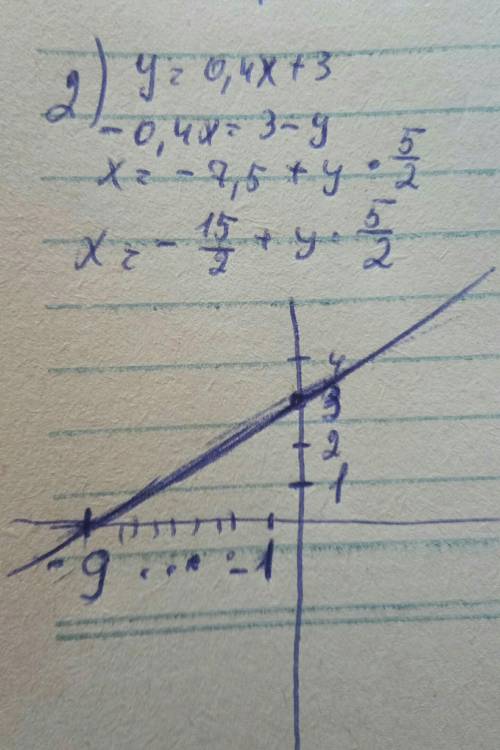 2) y = 0,4x + 3
- 0,4x = 3 - y
x = - 7,5 + y · 5/2
x = - 15/2 + y · 5/2
4
3
2
1
-9 ... -1